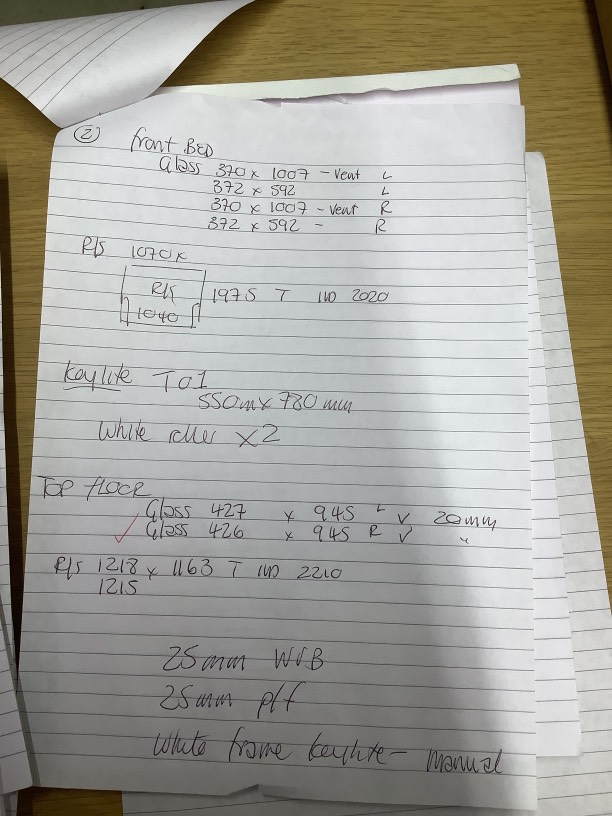 ②
front BED
Glass 370 x 1007 - Vent L
372 x 592 L
370 x 1007 - Vent R
372 x 592 - R
R/S 1070 x
R/S 1975 T IID 2020
1040
Keylite T01
550m x 780 mm
White x2
TOP FLOOR
Glass 427 x 945 L V 20mm
Glass 426 x 945 R V "
R/S 1218 x 1163 T IID 2210
1215
25mm WVB
25mm plf
White frame keylite - manual